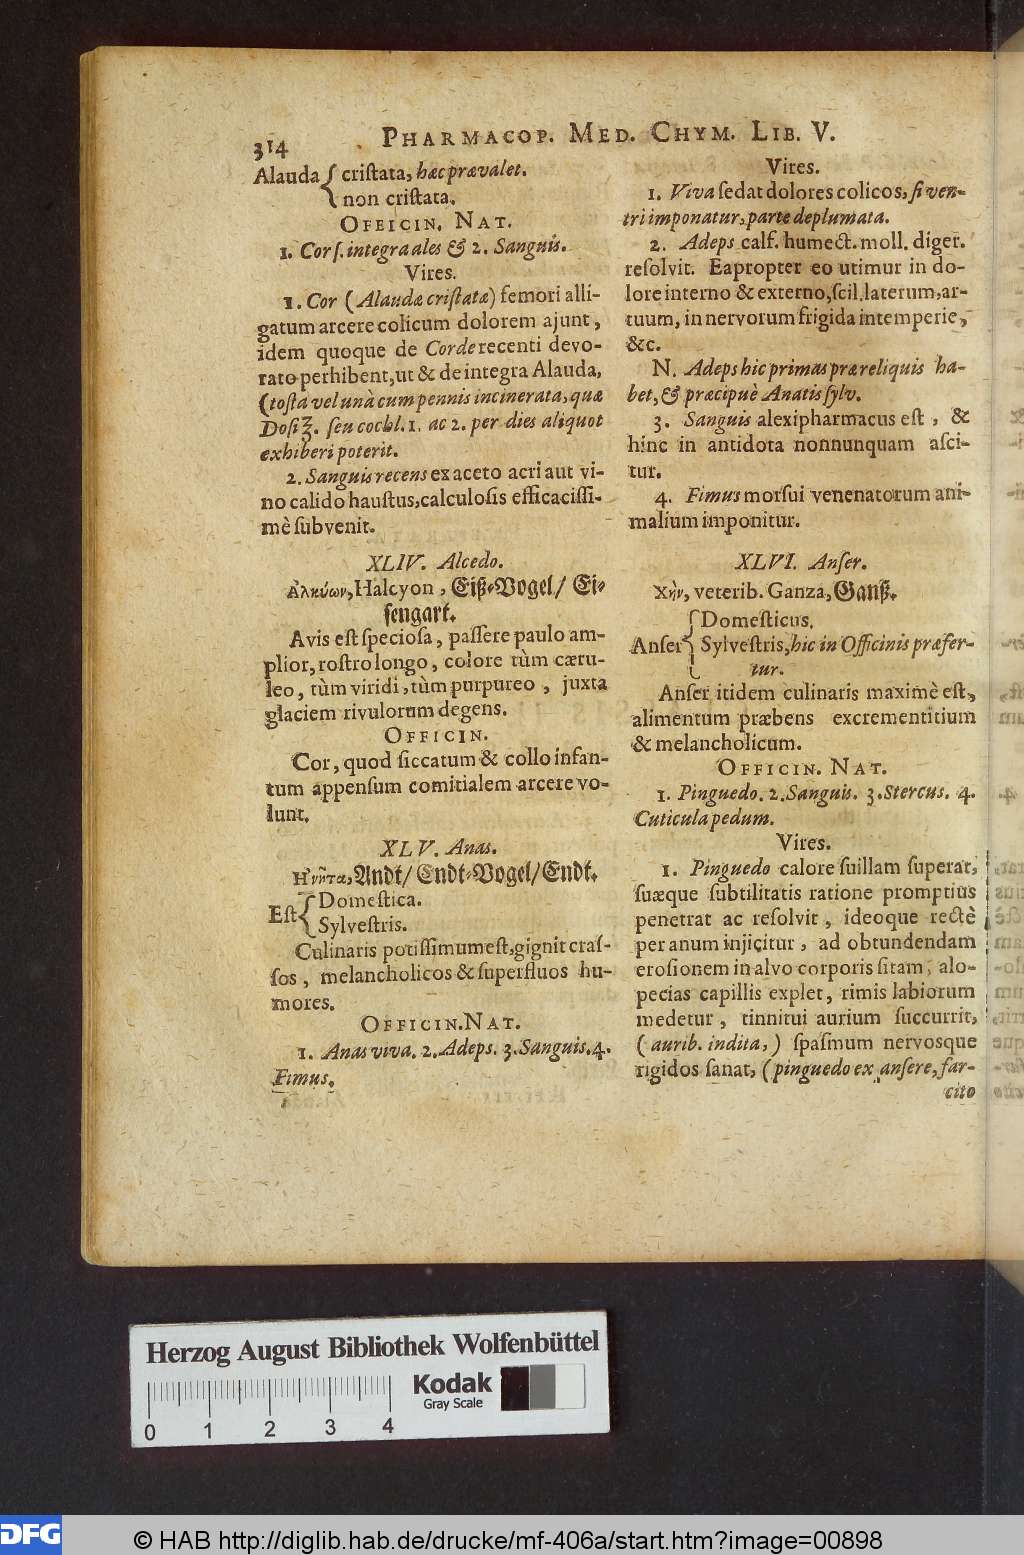 314
PHARMACOP. MED. CHYM. LIB. V.
Alauda { criſtata, hæc prævalet.
non criſtata.
OFFICIN. NAT.
1. Cor ſ. integra ales & 2. Sanguis.
Vires.
1. Cor (Alaudæ criſtatæ) femori alli-
gatum arcere colicum dolorem ajunt,
idem quoque de Corde recenti devo-
rato perhibent, ut & de integra Alauda,
(toſta vel unà cum pennis incinerata, quæ
Doſi ℥. ſeu cochl. 1. ac 2. per dies aliquot
exhiberi poterit.
2. Sanguis recens ex aceto acri aut vi-
no calido hauſtus, calculoſis efficaciſſi-
mè ſubvenit.
XLIV. Alcedo.
Ἀλκύων, Halcyon, Eiß-Vogel/ Ei-
ſengart.
Avis eſt ſpecioſa, paſſere paulo am-
plior, roſtro longo, colore tùm cæru-
leo, tùm viridi, tùm purpureo, juxta
glaciem rivulorum degens.
OFFICIN.
Cor, quod ſiccatum & collo infan-
tum appenſum comitialem arcere vo-
lunt.
XLV. Anas.
Ἡ νῆττα, Andt/ Endt-Vogel/ Endt.
Eſt { Domeſtica.
Sylveſtris.
Culinaris potiſſimum eſt, gignit craſ-
ſos, melancholicos & ſuperfluos hu-
mores.
OFFICIN. NAT.
1. Anas viva. 2. Adeps. 3. Sanguis. 4.
Fimus.
Vires.
1. Viva ſedat dolores colicos, ſi ven-
tri imponatur, parte deplumata.
2. Adeps calf. humect. moll. diger.
reſolvit. Eapropter eo utimur in do-
lore interno & externo, ſcil. laterum, ar-
tuum, in nervorum frigida intemperie,
&c.
N. Adeps hic primas præ reliquis ha-
bet, & præcipuè Anatis ſylv.
3. Sanguis alexipharmacus eſt, &
hinc in antidota nonnunquam aſci-
tur.
4. Fimus morſui venenatorum ani-
malium imponitur.
XLVI. Anſer.
Χὴν, veterib. Ganza, Ganß.
Anſer { Domeſticus.
Sylveſtris, hic in Officinis præfer-
tur.
Anſer itidem culinaris maximè eſt,
alimentum præbens excrementitium
& melancholicum.
OFFICIN. NAT.
1. Pinguedo. 2. Sanguis. 3. Stercus. 4.
Cuticula pedum.
Vires.
1. Pinguedo calore ſuillam ſuperat,
ſuæque ſubtilitatis ratione promptius
penetrat ac reſolvit, ideoque rectè
per anum injicitur, ad obtundendam
eroſionem in alvo corporis ſitam, alo-
pecias capillis explet, rimis labiorum
medetur, tinnitui aurium ſuccurrit,
(aurib. indita,) ſpaſmum nervosque
rigidos ſanat, (pinguedo ex anſere, far-
cito
Herzog August Bibliothek Wolfenbüttel
Kodak
Gray Scale
0 1 2 3 4
DFG
© HAB http://diglib.hab.de/drucke/mf-406a/start.htm?image=00898